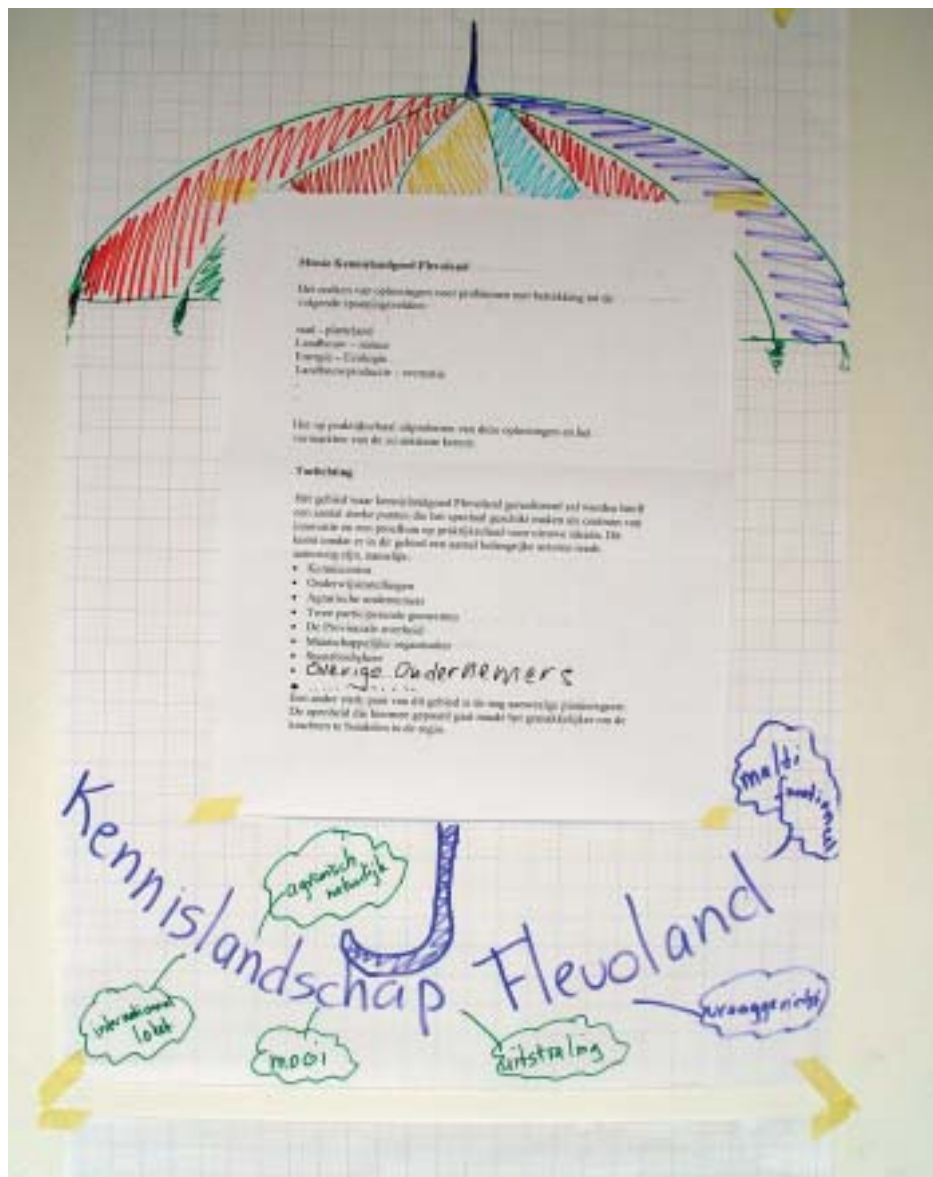 Missie Kennislandgoed Flevoland
Het zoeken van oplossingen voor problemen met betrekking tot de
volgende spanningsvelden:
stad - platteland
Landbouw - natuur
Energie - Ecologie
Landbouwproductie - recreatie
Het op praktijkschaal uitproberen van deze oplossingen en het
vermarkten van de zo ontstane kennis.
Toelichting
Het gebied waar kennislandgoed Flevoland gerealiseerd zal worden heeft
een aantal sterke punten die het speciaal geschikt maken als centrum van
innovatie en een proeftuin op praktijkschaal voor nieuwe ideeën. Dit
komt omdat er in dit gebied een aantal belangrijke actoren reeds
aanwezig zijn, namelijk:
• Kenniscentra
• Onderwijsinstellingen
• Agrarische ondernemers
• Twee participerende gemeentes
• De Provinciale overheid
• Maatschappelijke organisaties
• Overige Ondernemers
Een ander sterk punt van dit gebied is de nog aanwezige pioniersgeest.
De openheid die hiermee gepaard gaat maakt het gemakkelijker om de
krachten te bundelen in de regio.
multi
functioneel
agrarisch
natuurlijk
Kennislandschap Flevoland
internationaal
loket
mooi
uitstraling
vraaggericht